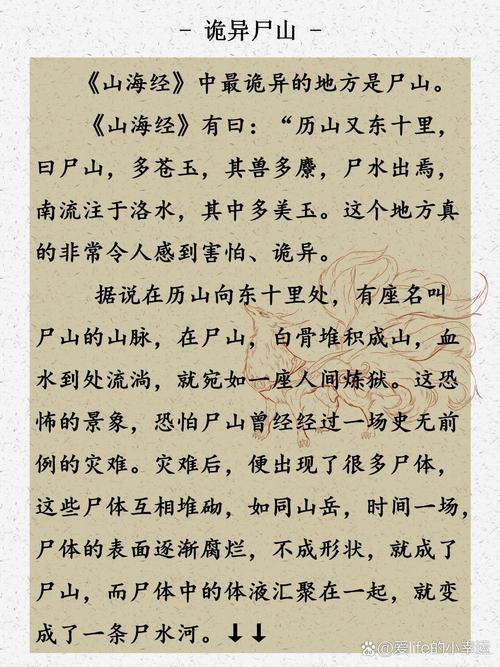 - 诡异尸山 -
《山海经》中最诡异的地方是尸山。
《山海经》有曰：“历山又东十里，
曰尸山，多苍玉，其兽多麖，尸水出焉，
南流注于洛水，其中多美玉。这个地方真
的非常令人感到害怕、诡异。
据说在历山向东十里处，有座名叫
尸山的山脉，在尸山，白骨堆积成山，血
水到处流淌，就宛如一座人间炼狱。这恐
怖的景象，恐怕尸山曾经经过一场史无前
例的灾难。灾难后，便出现了很多尸体，
这些尸体互相堆砌，如同山岳，时间一场，
尸体的表面逐渐腐烂，不成形状，就成了
尸山，而尸体中的体液汇聚在一起，就变
成了一条尸水河。⬇⬇
Baidu百家号@爱life的小幸运